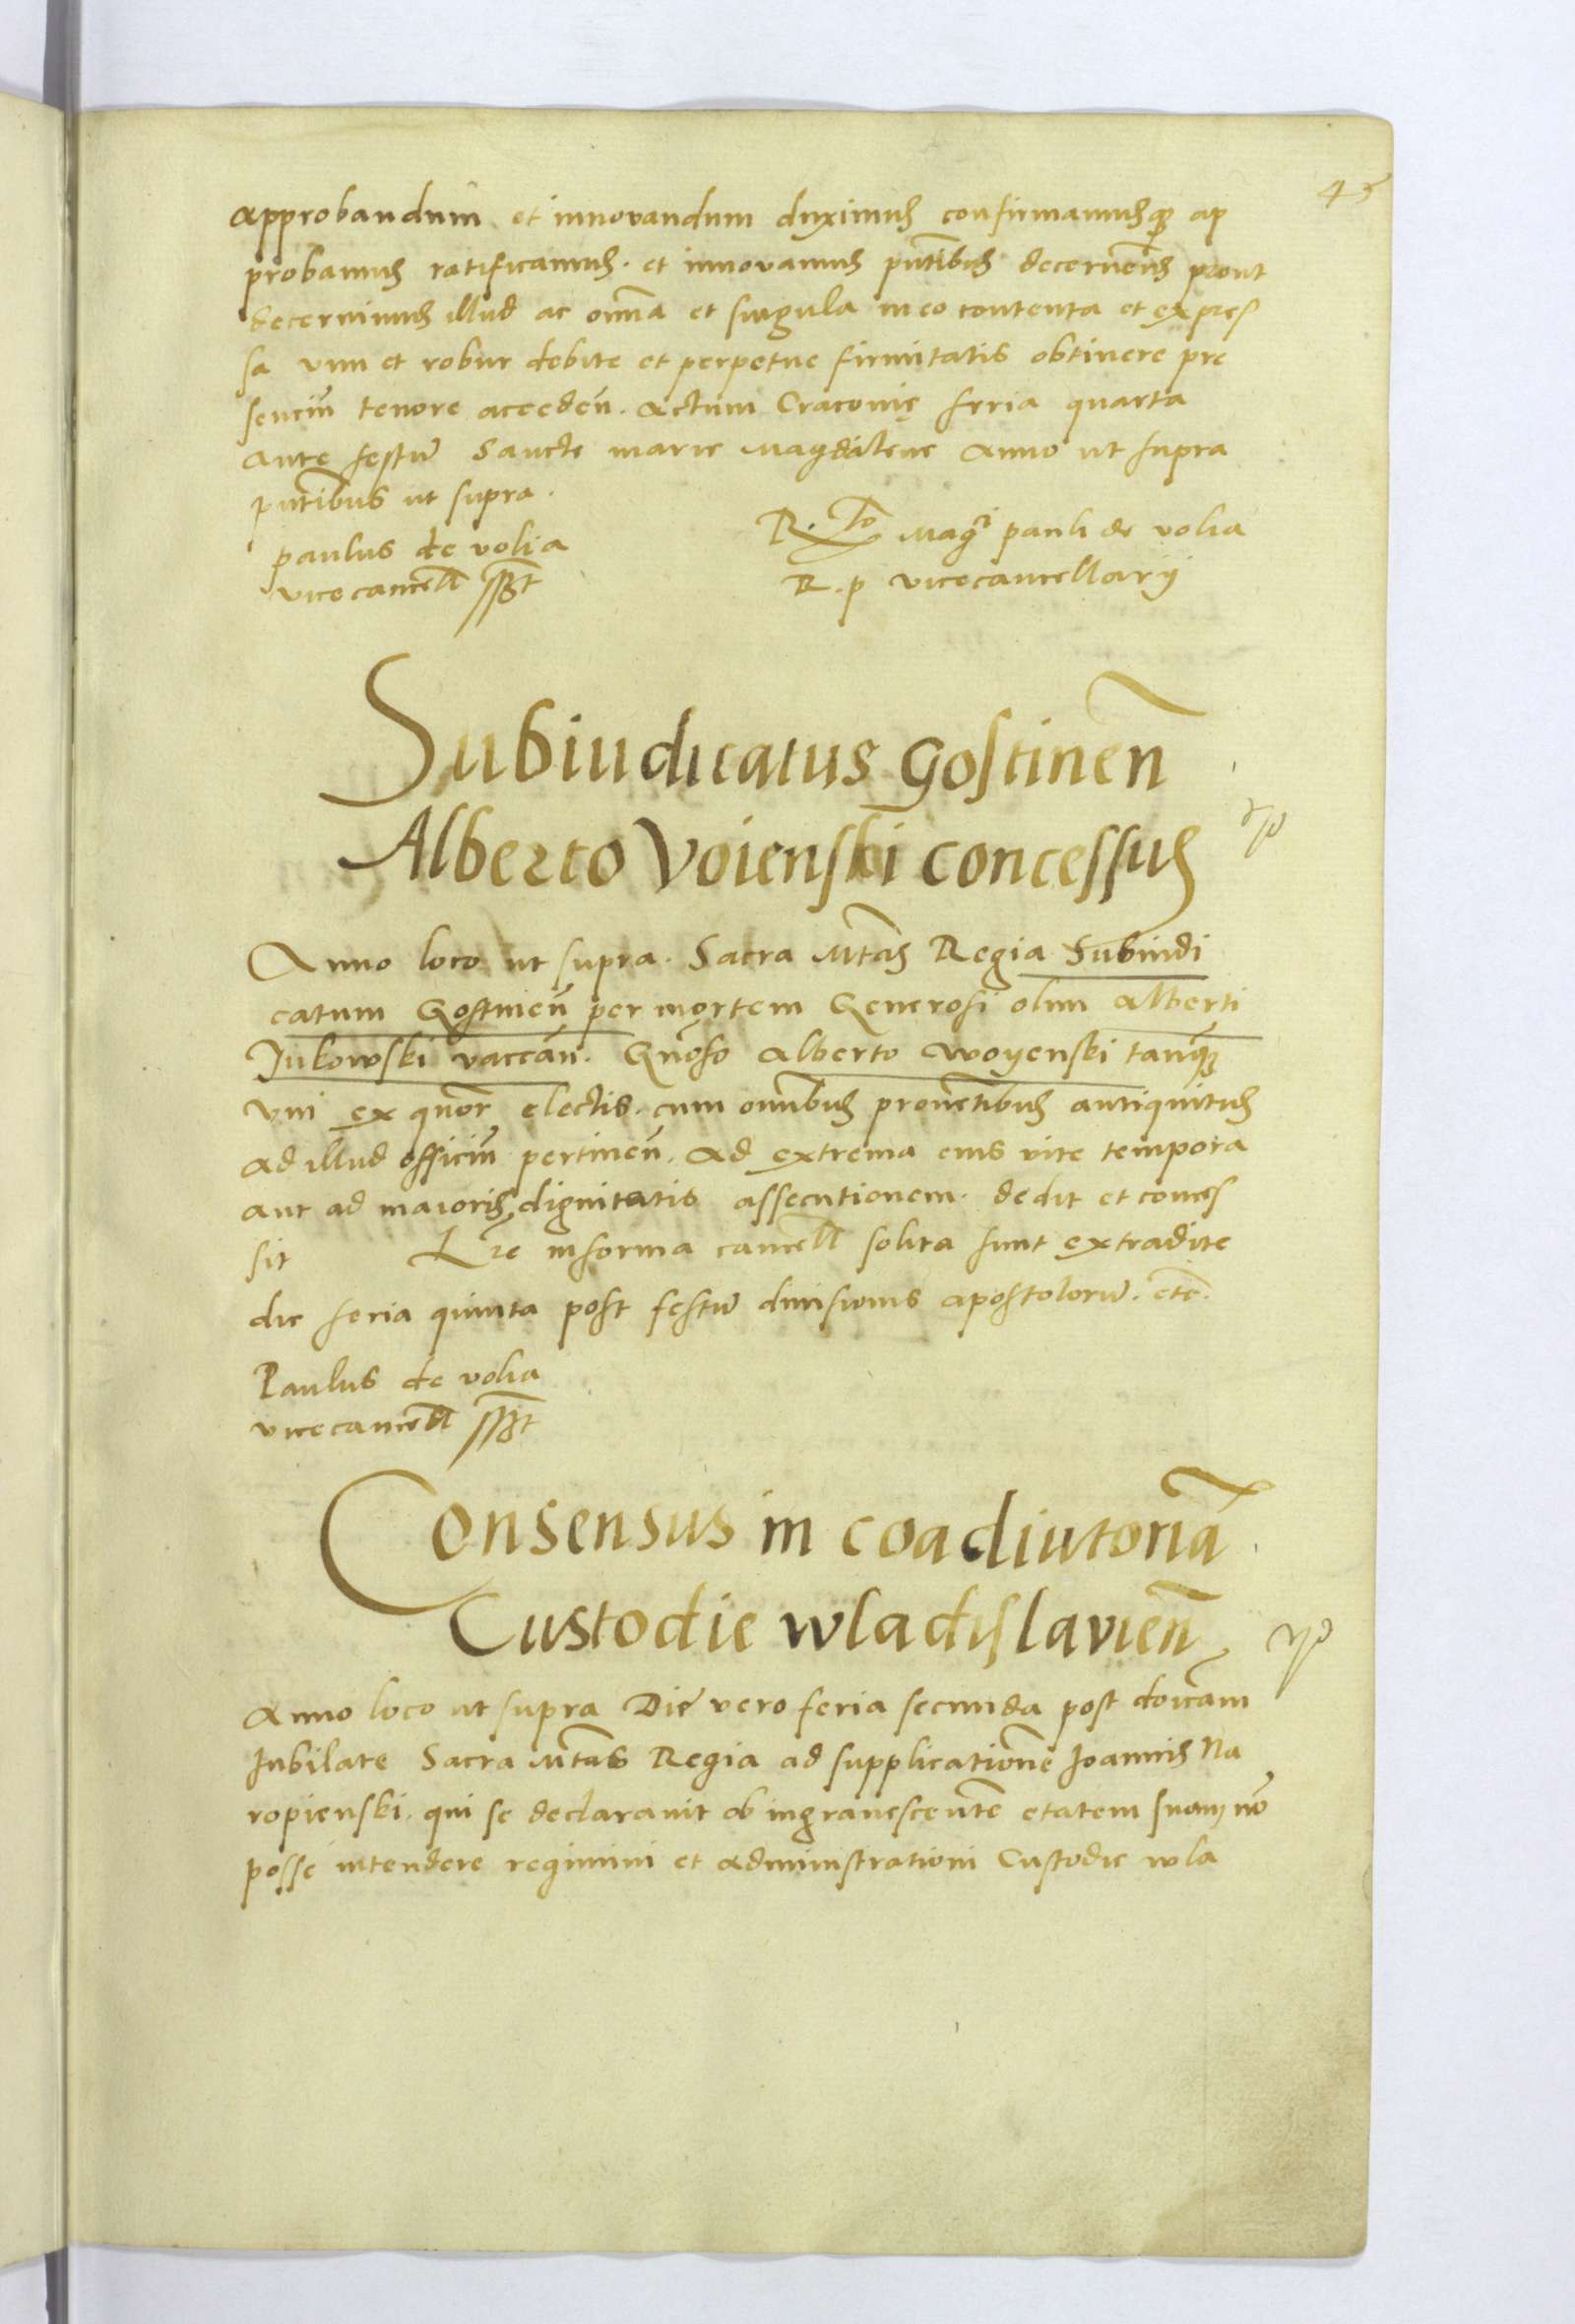 45
approbandum et innovandum duximus confirmamusq ap
probamus ratificamus. et innovamus pntibus decernens prout
decernimus illud ac omnia et singula in eo contenta et expres
sa vim et robur debite et perpetue firmitatis obtinere pre
senciū tenore acceden̄. Actum Cracovię feria quarta
ante festū Sancte marie Magdalene Anno ut supra
pntibus ut supra.
paulus de volia
vicecancell sst
R.to magci pauli de volia
R. p vicecancellarij
Subiudicatus Gostinen̄
Alberto Voienski concessus
Anno loco ut supra. Sacra Mtas Regia Subiudi
catum Gostinen̄ per mortem Generosi olim Alberti
Jukowski vaccan̄. Gnoso Alberto Woyenski tanq
vni ex quor electis. cum omnibus proventibus antiquitus
ad illud officiū pertinen̄. Ad extrema eius vite tempora
aut ad maioris dignitatis assecutionem. dedit et conces
sit Lre in forma cancell solita sunt extradite
die feria quinta post festū divisionis apostolorū. etc.
Paulus de volia
vicecancell sst
Consensus in coadiutoriā
Custodie wladislavien̄
Anno loco ut supra Die vero feria secunda post doicam
Jubilate Sacra Mtas Regia ad supplicationē Joannis Na
ropienski. qui se declaravit ob ingravescentē etatem suam nō
posse intendere regimini et administrationi Custodie wla